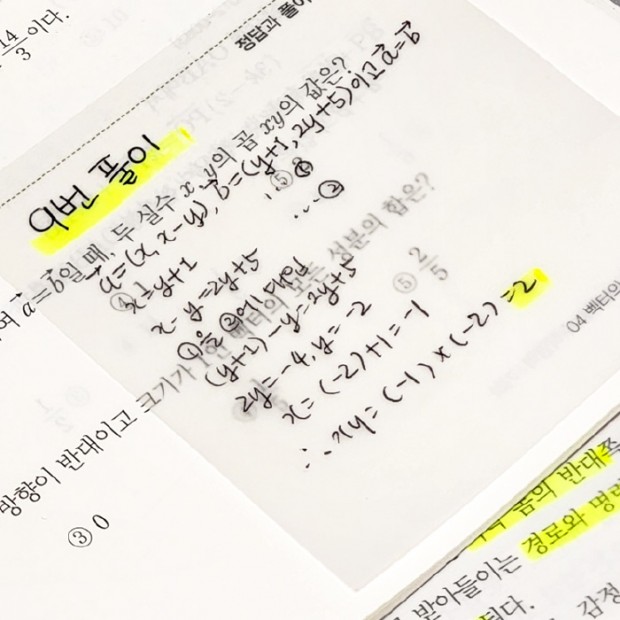 14/3 이다.
정답과 풀이
9번 풀이
a=b일 때, 두 실수 x, y의 곱 xy의 값은?
a=(x, x-y), b=(y+1, 2y+5)이고 a=b
x=y+1 … ①
x-y=2y+5 … ②
①을 ②에 대입
(y+1)-y=2y+5
2y=-4, y=-2
x=(-2)+1=-1
∴ xy=(-1)×(-2)=2
방향이 반대이고 크기가 1인 벡터의 모든 성분의 합은?
③ 0
⑤ 2/5
04 벡터의
의 반대쪽
받아들이는 경로와 명령
된다.
감정